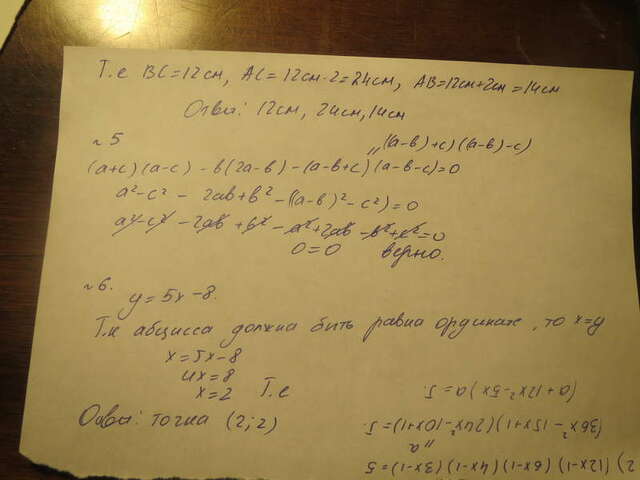 Т.е ВС=12см, АС=12см·2=24см, АВ=12см+2см=14см
Ответ: 12см, 24см, 14см
№5
"((a-b)+c)((a-b)-c)
(a+c)(a-c) - b(2a-b) - (a-b+c)(a-b-c)=0
a²-c² - 2ab+b² - ((a-b)²-c²)=0
a²-c² - 2ab + b² - a²+2ab - b²+c²=0
0=0 верно.
№6.
y=5x-8.
Т.к абсцисса должна быть равна ординате, то x=y
x=5x-8
4x=8
x=2 Т.е
Ответ: точка (2;2)
2) (12x-1)(6x-1)(4x-1)(3x-1)=5
(36x²-15x+1)(24x²-10x+1)=5.
"a
(a+12x²-5x)a=5.